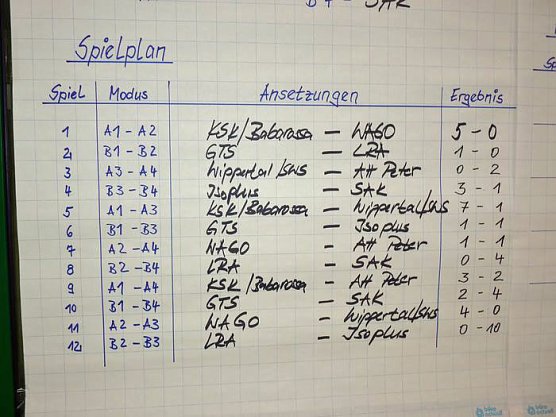 B4 - SAK
Spielplan
Spiel Modus Ansetzungen Ergebnis
1 A1 - A2 KSK/Babarossa - WAGO 5 - 0
2 B1 - B2 GTS - LRA 1 - 0
3 A3 - A4 Wippertal/SWS - AH Peter 0 - 2
4 B3 - B4 Isoplus - SAK 3 - 1
5 A1 - A3 KSK/Babarossa - Wippertal/SWS 7 - 1
6 B1 - B3 GTS - Isoplus 1 - 1
7 A2 - A4 WAGO - AH Peter 1 - 1
8 B2 - B4 LRA - SAK 0 - 4
9 A1 - A4 KSK/Babarossa - AH Peter 3 - 2
10 B1 - B4 GTS - SAK 2 - 4
11 A2 - A3 WAGO - Wippertal/SWS 4 - 0
12 B2 - B3 LRA - Isoplus 0 - 10